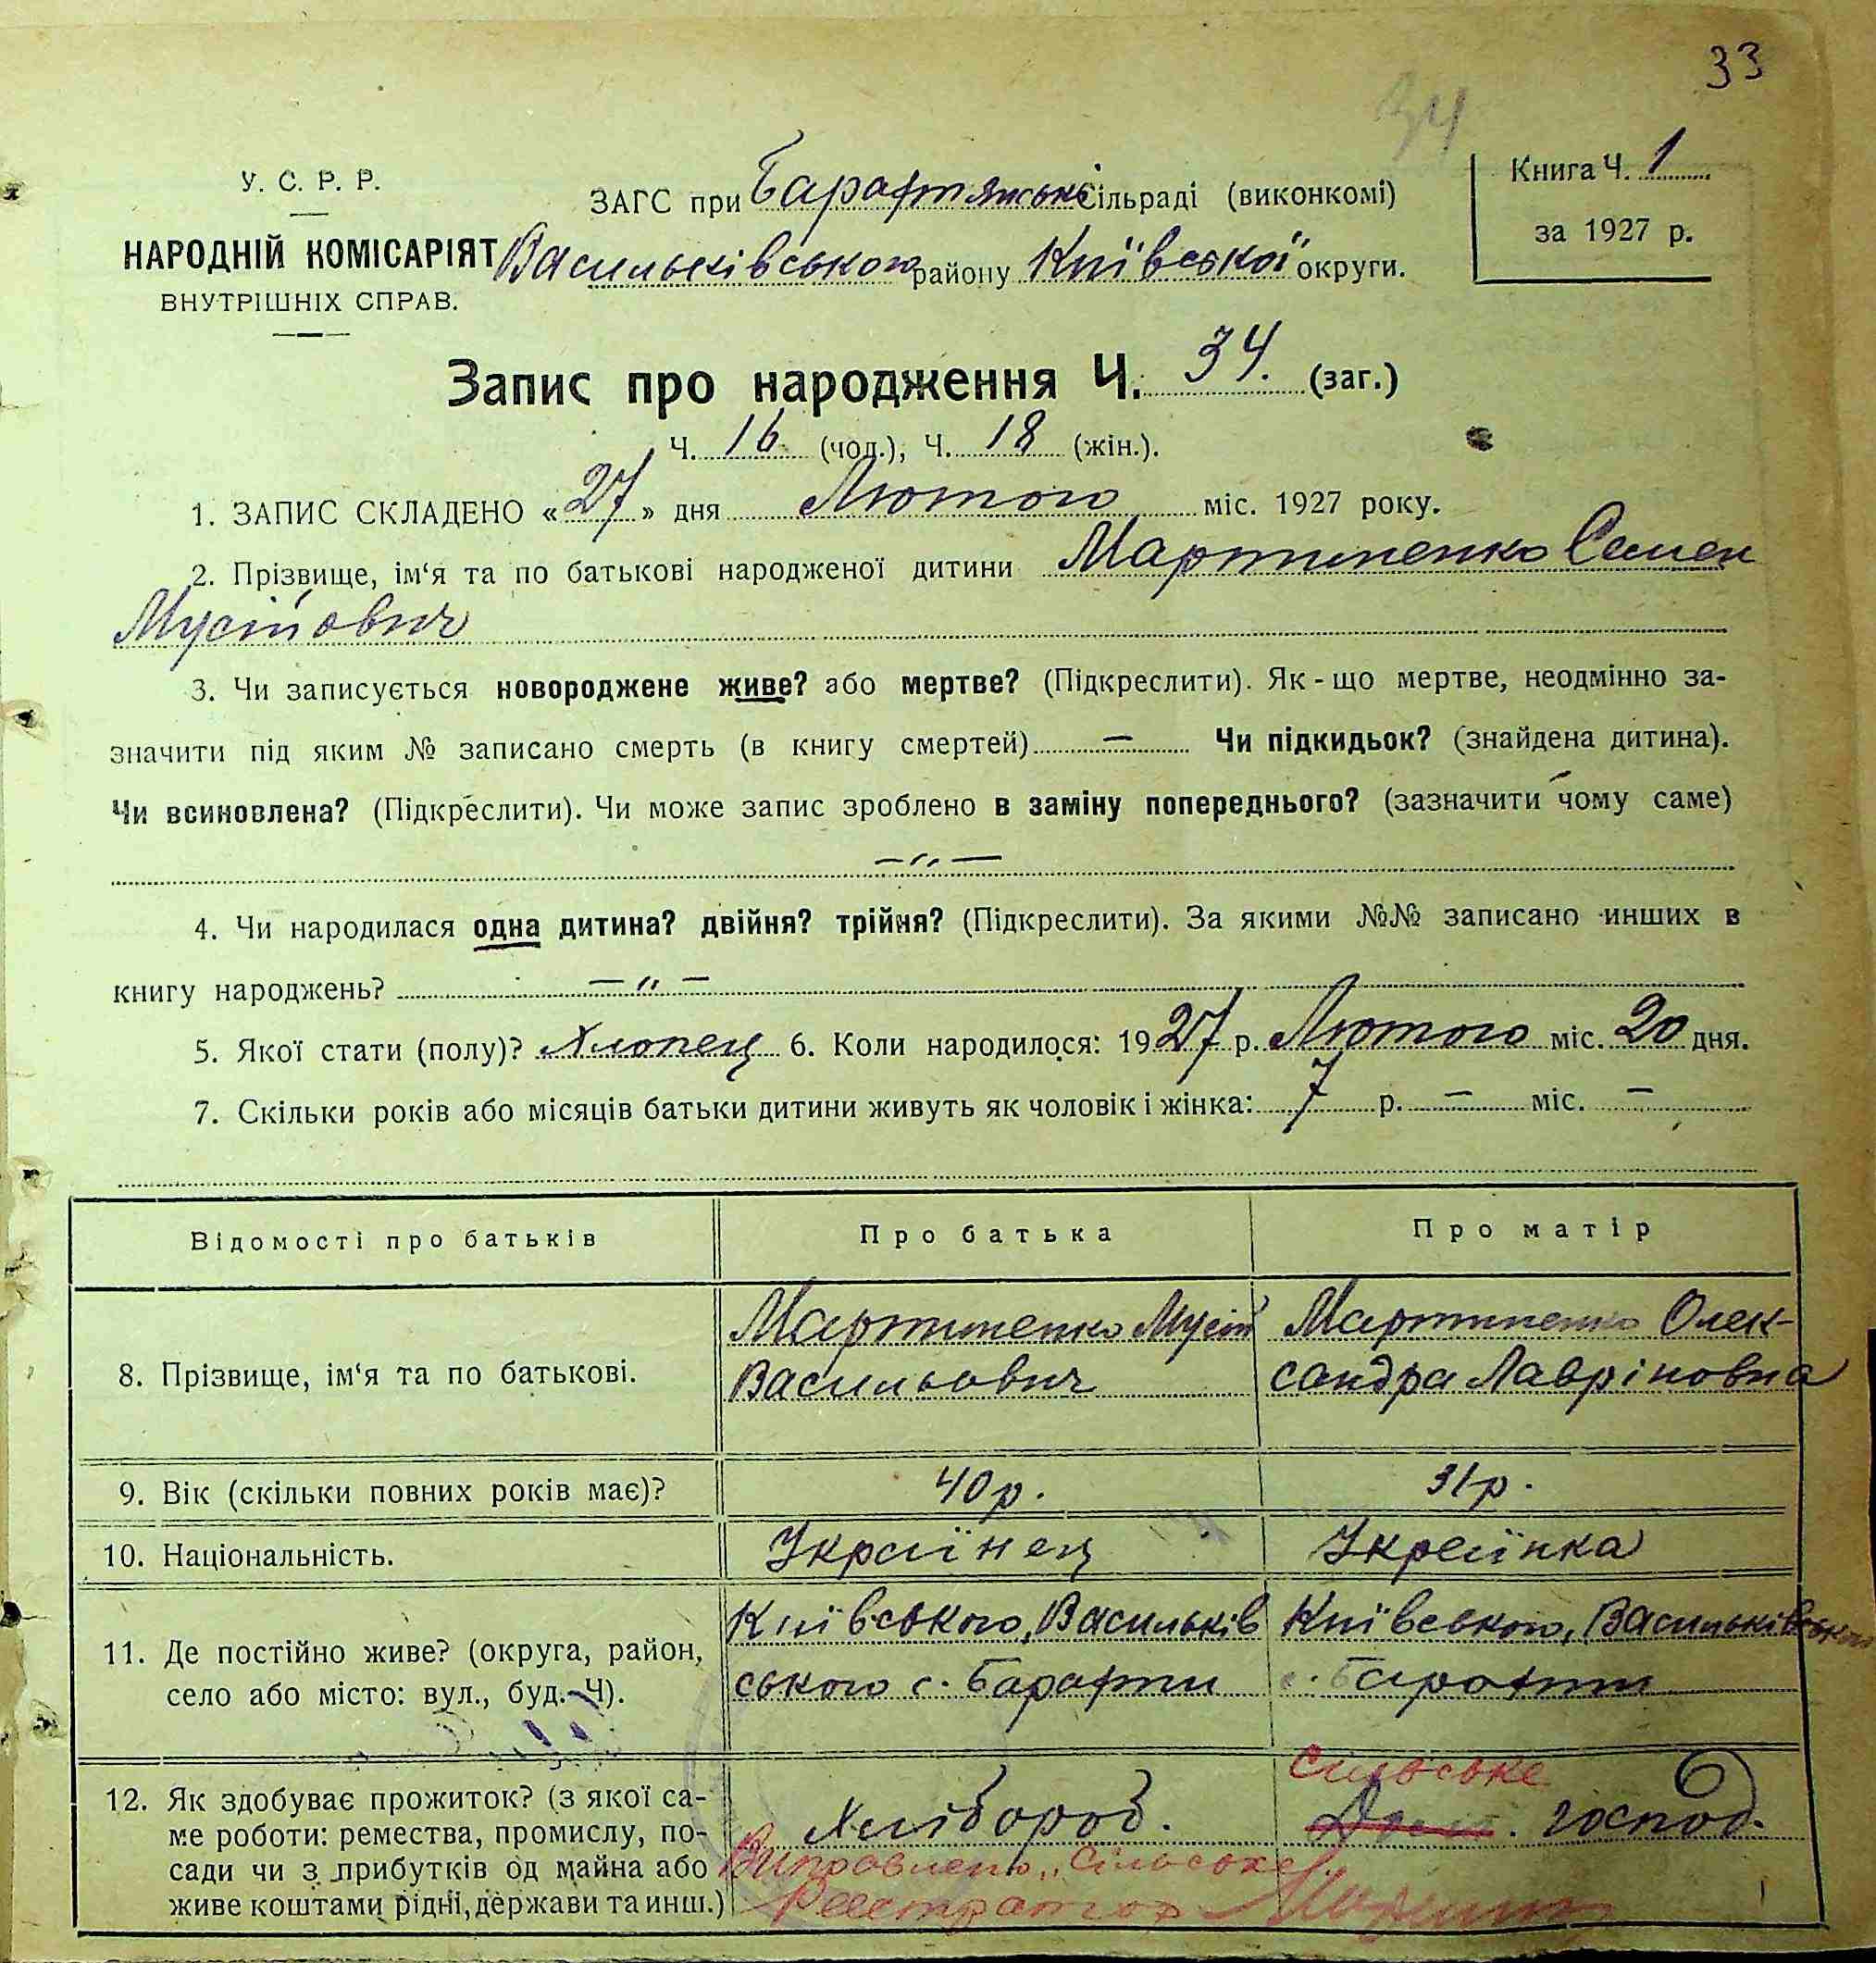 33
34
У. С. Р. Р.
НАРОДНІЙ КОМІСАРІЯТ
ВНУТРІШНІХ СПРАВ.
ЗАГС при Барахтянські Сільраді (виконкомі)
Васильківського району Київської округи.
Книга Ч. 1
за 1927 р.
Запис про народження Ч. 34. (заг.)
Ч. 16 (чол.), Ч. 18 (жін.).
1. ЗАПИС СКЛАДЕНО «27» дня Лютого міс. 1927 року.
2. Прізвище, ім‘я та по батькові народженої дитини Мартиненко Семен
Мусійович
3. Чи записується новороджене живе? або мертве? (Підкреслити). Як-що мертве, неодмінно за-
значити під яким № записано смерть (в книгу смертей) — Чи підкидьок? (знайдена дитина).
Чи всиновлена? (Підкреслити). Чи може запис зроблено в заміну попереднього? (зазначити чому саме)
— „ —
4. Чи народилася одна дитина? двійня? трійня? (Підкреслити). За якими №№ записано инших в
книгу народжень? — „ —
5. Якої стати (полу)? Хлопець 6. Коли народилося: 1927 р. Лютого міс. 20 дня.
7. Скільки років або місяців батьки дитини живуть як чоловік і жінка: 7 р. — міс. —
Відомості про батьків Про батька Про матір
8. Прізвище, ім‘я та по батькові.
Мартиненко Мусій
Васильович
Мартиненко Олек-
сандра Лавріновна
9. Вік (скільки повних років має)? 40 р. 31 р.
10. Національність. Українец Українка
11. Де постійно живе? (округа, район,
село або місто: вул., буд.-Ч).
Київського, Васильків
ського с. Барахти
Київського, Васильківського
с. Барахти
12. Як здобуває прожиток? (з якої са-
ме роботи: ремества, промислу, по-
сади чи з прибутків од майна або
живе коштами рідні, держави та инш.)
Хлібороб.
Сильське
Дом. господ.
Виправлено „Сільське"
Реєстратор